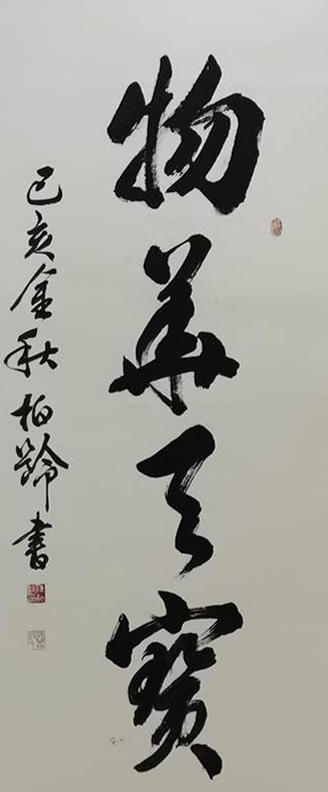 物華天寶
己亥金秋柏齡書